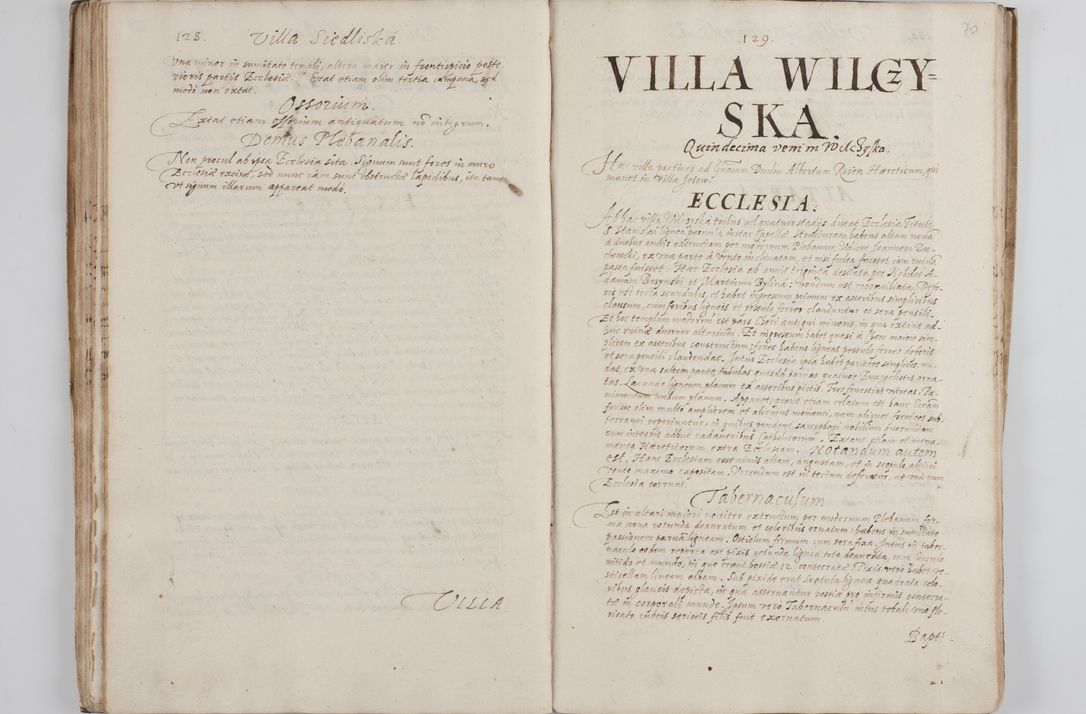 128. Villa Siedliska.
Vna minor in sumitate templi, altera maior in frontispicio poste
rioris partis Ecclesiæ. Erat etiam olim tertia campana, sed
modo non extat.
Ossorium.
Extat etiam ossorium antiquatum nō integrum.
Domus Plebanalis.
Non procul ab ipsa Ecclesia sita. Signum sunt fores in muro
Ecclesiæ excisæ, sed nunc iam sunt obstructæ lapidibus, ita tamen
vt signum illarum appareat modo.
VILLA
129.
70
VILLA WILCZY=
SKA.
Quindecima veni in Wilczyska.
Hac villa pertinet ad Gnosum Dnum Albertum Rosen Hæreticum, qui
manet in villa Jezow.
ECCLESIA.
Ab hac villa Wilczyska tribus vel quatuor stadijs distat Ecclesia Tituli
S. Stanislai lignea paruula instar Capellæ
à duobus annis extructam per modernum Plebanum Joannem
ex vna parte à vento inclinatam, et nisi fulta fuisset iam ruinā
passa fuisset. Hæc Ecclesia ab annis triginta desolata per Nobiles A-
damum Brzynski et Martinum Bylina: nondum est reconciliata. Defo-
ris est tecta scandulis, et habet ingressum primum ex asseribus simplicibus
clausum, cum foribus ligneis et pessulo ferreo clauduntur et sera pensili.
Et hoc templum modernū est pars Chori antiqui minoris, in qua extant ad-
huc ruinæ duorum altarium. Et ingressum habet quasi à fore maiore sim-
plicem ex asseribus constructum, fores habens ligneas pessulo ferreo deforis
et sera pensili claudendas. Intus Ecclesia ipsa habet parietes simplices nu-
das, ex vna saltem parte tabulas quasdā paruas quatuor Euangelistis orna-
tas. Lacunar ligneum planum ex asseribus pictis. Tres fenestras vitreas. Pa-
uimentum nudum planum. Apparet, prout etiam relatum est hanc Ecclām
fuisse olim multo ampliorem et alicuius momenti, nam aliquot fornices sub-
terranei reperiuntur, in quibus pendent sarcophagi nobilium quorundam
cum integris adhuc cadaueribus Catholicorum. Extant etiam et monu-
menta Hæreticorum, extra Ecclesiam. Notandum autem
est, Hanc Ecclesiam esse nimis altam, angustam, et in
vento maximo expositam. Verendum est ni tectum defendatur, ne
Ecclesia corruat.
Tabernaculum
Est in altari maiori nouiter extructum per modernum Plebanum for-
ma noua rotunda deauratum et coloribus ornatum: habens in sumitate
passionem paruā ligneam. Ostiolum firmum cum sera fixa. Intus in taber-
naculo eodem reperta est pixis rotunda lignea tota deaurata, cum
nitido et mundo, in quo erant hostiæ 12 consecratæ. Pixis vero habet ve-
sticellam lineam albam. Sub pixide erat scatula lignea quadrata colo-
ribus glaucis depicta, in qua asseruantur hostiæ pro infirmis consecra-
tæ in corporali mundo. Ipsum vero Tabernaculū intus tobali vno flo-
risato rubeis sericeis filis fuit exornatum
Bapti-